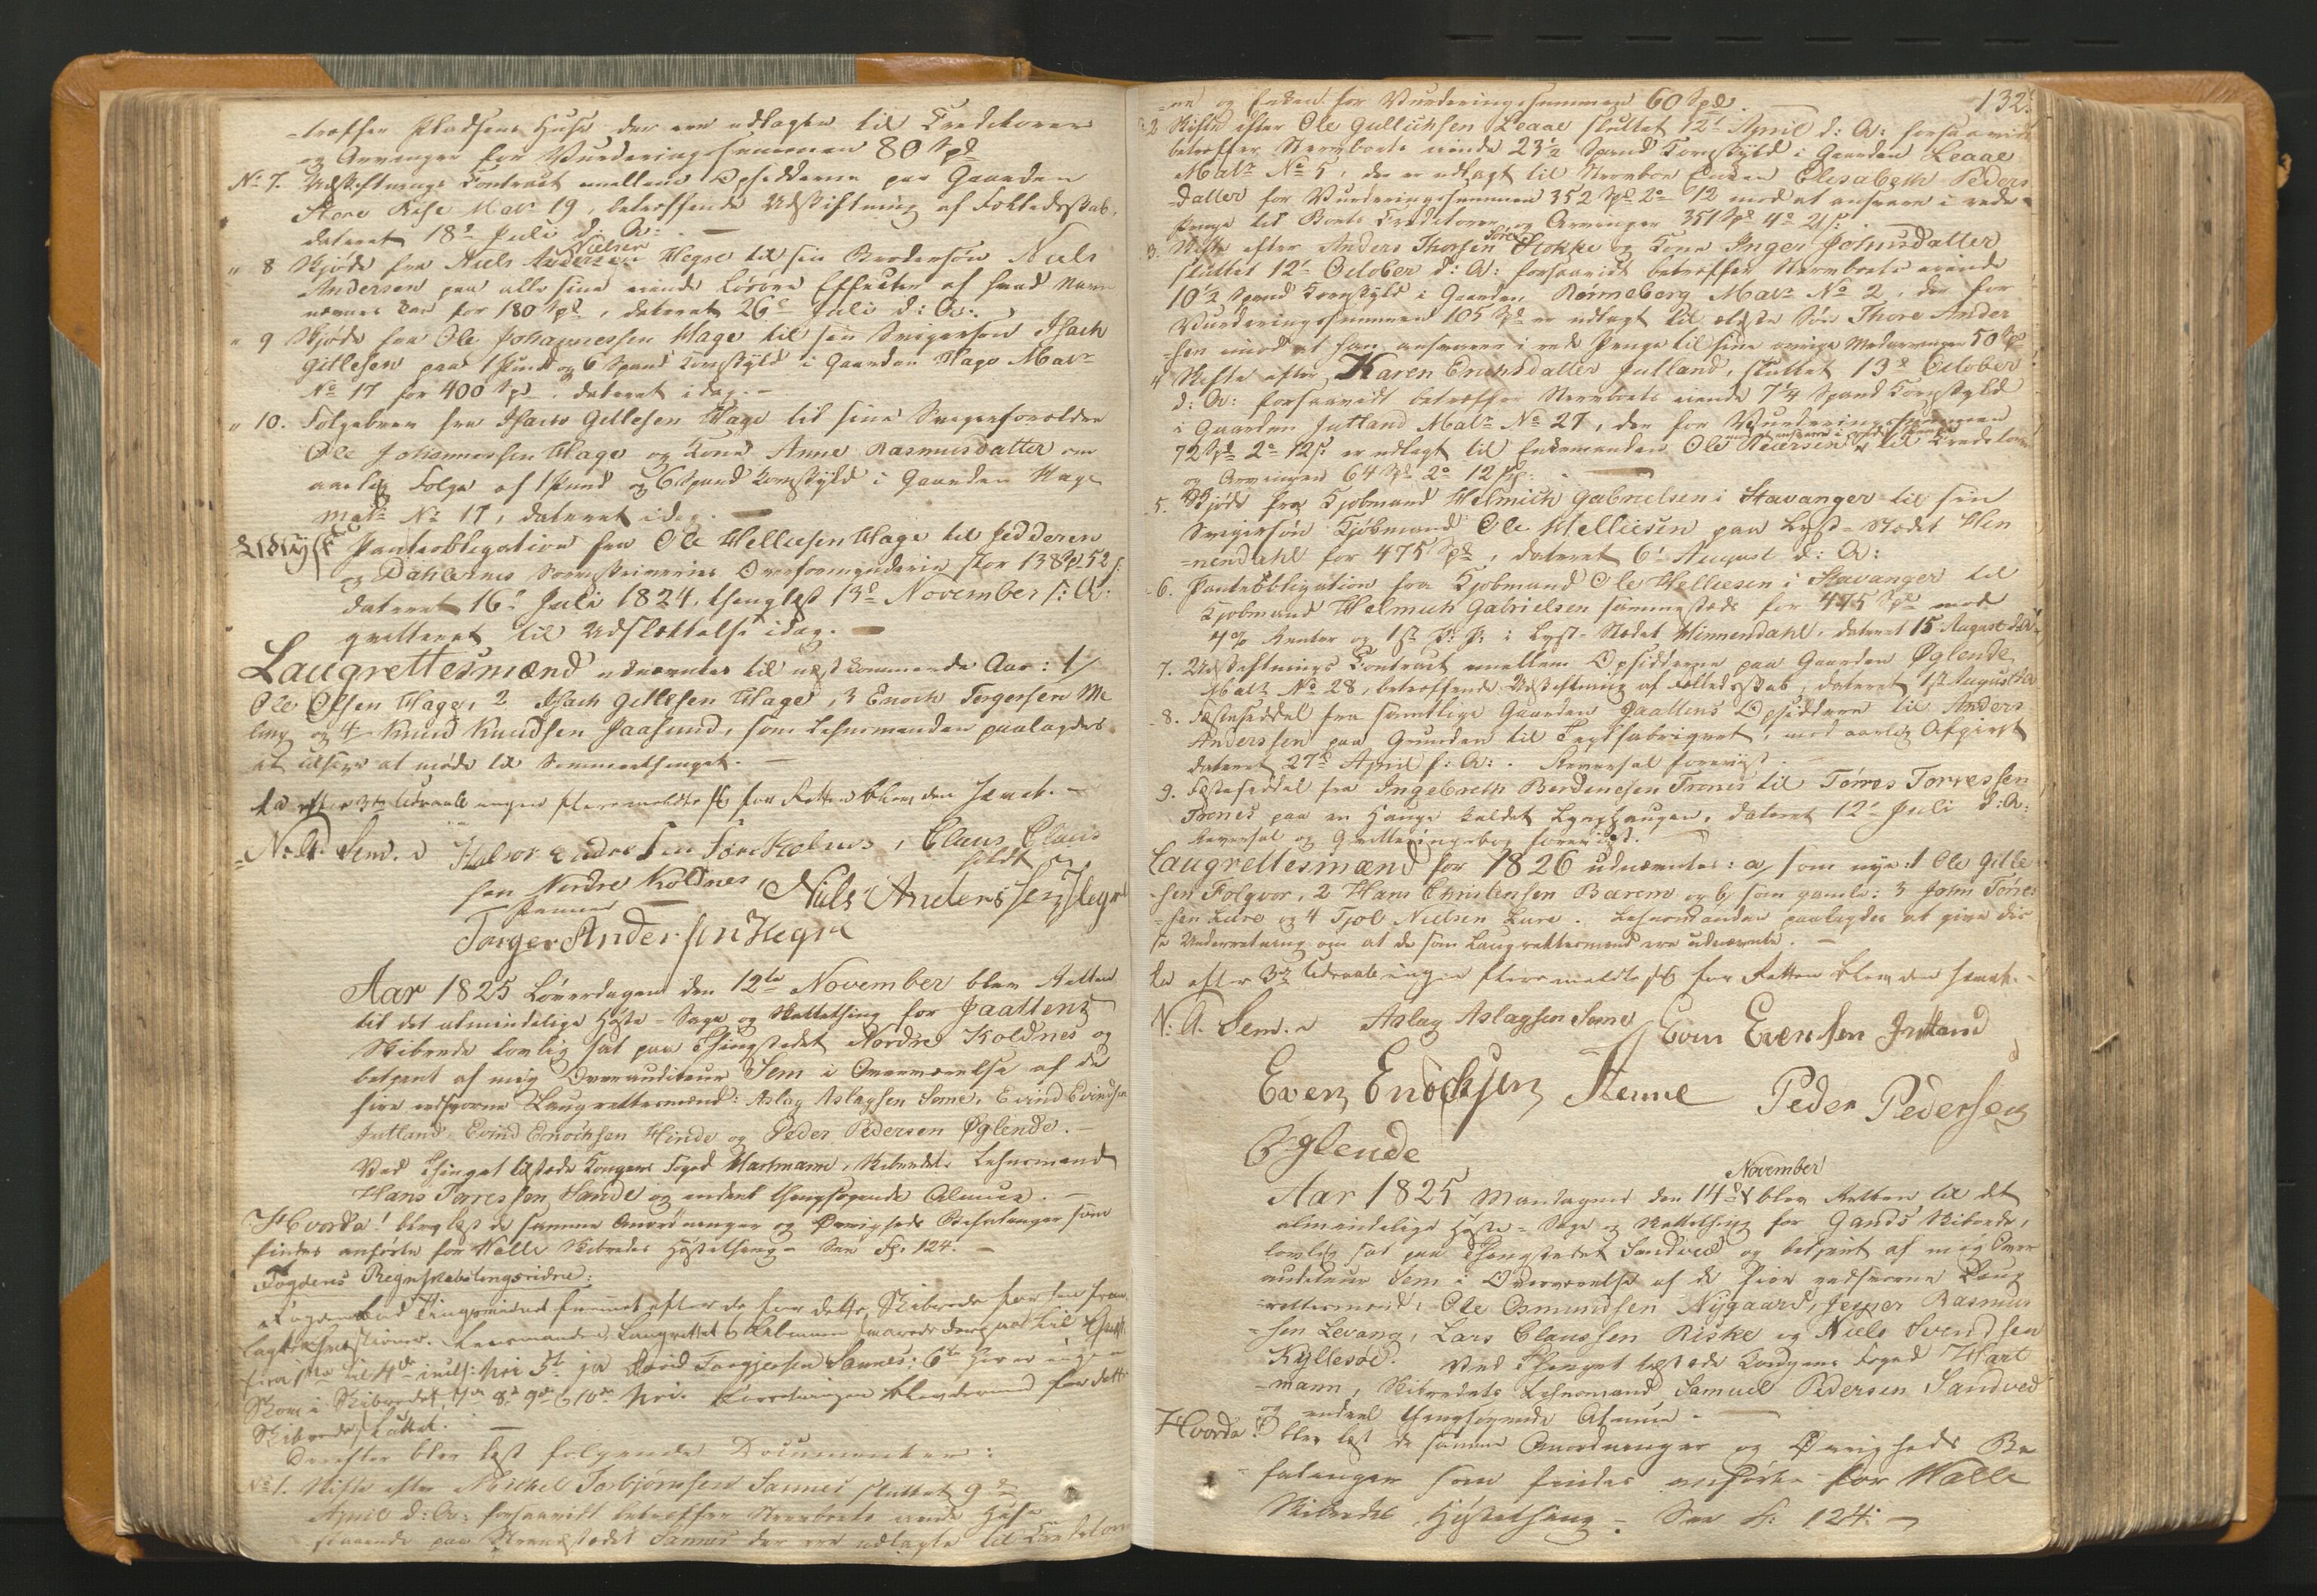 -treffer Pladsens Huse der ere udlagte til Creditorer
og Arvinger for Vurderingssummen 80 Spd
No 7. Udskiftnings Contract mellem Opsidderne paa Gaarden
Store Rise Mat: 19, betreffende Udskiftning af Fælledsskab,
dateret 18de Juli d: A: —
" 8 Skjöde fra Niels Nielsen Hegre til sin Brodersön Niels
Andersen paa alle sine eiende Lösöre Effecter af hvad Navn
nævnes kan for 180 Spd, dateret 26de Juli d: A:.
" 9 Skjöde fra Ole Johannessen Hage til sin Svigersön Isach
Gitlesen paa 1 Pund og 6 Spand Kornskyld i Gaarden Hage Matr
No 17 for 400 Spd. dateret idag. —
" 10. Folgebrev fra Isach Gitlesen Hage til sine Svigerforældre
Ole Johannessen Hage og Kone Anne Rasmusdatter om
aarlig Folge af 1 Pund og 6 Spand Kornskyld i Gaarden Hage
Matr No 17, dateret idag. —
Udslt Panteobligation fra Ole Helliesen Hage til Jedderen
og Dahlernes Sorenskriveries Overformynderie stor 138 Spd 52 s
dateret 16de Juli 1824, thinglæst 13de November s: A:
qvitteret til Udslettelse idag. —
Laugrettesmænd udnævntes til næstkommende Aar: 1/
Ole Olsen Hage, 2 Isach Gitlesen Hage, 3 Enoch Torgersen Me
ling og 4 Knud Knudsen Jaasund, som Lehnsmanden paalagdes
at tilsige at möde til Sommerthinget. —
Da efter 3de Udraab ingen flere meldte sig for Retten blev den hævet. —
N: A. Sem. Halvor Endresen Sör Kolnes, Claus Claus
sen Nordre Kolnes, Niels Anderssen Hegre
holdt
Pennen
Torger Andersen Hegre
Aar 1825 Löverdagen den 12te November blev Retten
til det almindelige Höste-Sage og Skattething for Jaattens
Skibrede lovlig sat paa Thingstedet Nordre Kolnes og
betjent af mig Overauditeur Sem i Overværelse af de
fire edsvorne Laugrettesmænd: Aslag Aslagsen Some, Evind Evindsen
Jutland, Evind Enochsen Hinde og Peder Pedersen Øglende. —
Ved Thinget tilstede Kongens Foged Hartmann, Skibredets Lehnsmand
Hans Torressen Sande og endeel thingsøgende Almue. —
Hvorda! blev læst de samme Anordninger og Øvrigheds Befalinger som
findes anførte for Walle Skibredes Høstething. See Fo: 124. —
Fogdens Regnskabstingsvidne:
Skibrede sluttet. —
Derefter blev læst følgende Documenter:
No 1. Skifte efter Michel Torbjörnsen Sannes sluttet 9de
April d: A: forsaavidt betreffer Stervboets eiende Huse
staaende paa Strandstædet Sannes der ere udlagte til Creditorer
132.
-ne og Enken for Vurderingssummen 60 Spd.
2 Skifte efter Ole Gullichsen Leaae sluttet 12te April d: A: forsaavidt
betreffer Stervboets eiende 23½ Spand Kornskyld i Gaarden Leaae
Matr No 5, der er udlagt til Stervboe Enken Elisabeth Peders
datter for Vurderingssummen 352 Spd 2o 12 mod at ansvare i rede
Penge til Boets Creditorer og Arvinger 351 Spd 4o 21 s:
3. Skifte efter Anders Thorsen Söre Stokke og Kone Inger Johnsdatter
sluttet 12te October d: A: forsaavidt betreffer Stervboets eiende
10½ Spand Kornskyld i Gaarden Rönneberg Matr No 2, der for
Vurderingssummen 105 Spd er udlagt til ældste Sön Thore Ander
-sen mod at han ansvarer i rede Penge til sine övrige Medarvinger 50 Spd
4 Skifte efter Karen Enensdatter Jutland, sluttet 13de October
d: A: forsaavidt betreffer Stervboets eiende 7¼ Spand Kornskyld
i Gaarden Jutland Matr No 27, der for Vurderingssummen
72 Spd 2o 12 s er udlagt til Enkemanden Ole Peersen mod at ansvare i rede Penge til Creditorer
og Arvinger 64 Spd 2o 12 s:
5. Skjöde fra Kjöbmand Helmich Gabrielsen i Stavanger til sin
Svigersön Kjöbmand Ole Helliesen paa Lyst-Stedet Hin
-nendahl for 475 Spd, dateret 6te August d: A:
6. Panteobligation fra Kjöbmand Ole Helliesen i Stavanger til
Kjöbmand Helmich Gabrielsen sammesteds for 475 Spd mod
4 % Renter og 1ste Pr: Pr: i Lyst-Stedet Hinnendahl, dateret 15 August d: A:
7. Udskiftnings Contract mellem Opsidderne paa Gaarden Øglende
Matr No 28, betreffende Udskiftning af Fælledsskab, dateret 1ste August d: A
8. Fæsteseddel fra samtlige Gaarden Jaattens Opsiddere til Anders
Anderssen paa Grunden til Teglfabriqvet, mod aarlig Afgivt
dateret 27de April f: A:. Reversal foreviist.
9. Fæsteseddel fra Ingebreth Berdinesen Trones til Törres Torressen
Trones paa en Hauge kaldet Lynghaugen, dateret 12te Juli d: A:
Reversal og Qvitteringsbog foreviist.
Laugrettesmænd for 1826 udnævntes: a, som nye: 1 Ole Gitle
-sen Folgvor, 2 Hans Christensen Bærem og b, som gamle: 3 John Törre
-sen Lure og 4 Tjöl Nielsen Lure. Lehnsmanden paalagdes at give dis
se Underretning om at de som Laugrettesmænd ere udnævnte. —
Da efter 3de Udraab ingen flere meldte sig for Retten blev den hævet. —
N: A. Sem. Aslag Aslagsen Some Even Evensen Jutland
Even Enochsen Henne Peder Pedersen
Øglende
Aar 1825 Mandagen den 14de November blev Retten til det
almindelige Höste-Sage og Skattething for Gands Skibrede,
lovlig sat paa Thingstedet Sandved og betjent af mig Over
auditeur Sem i Overværelse af de fire edsvorne Laug
-rettesmænd: Ole Osmundsen Nygaard, Jesper Rasmus
-sen Levang, Lars Claussen Riske og Niels Svendsen
Kyllesøe. Ved Thinget tilstede Kongens Foged Hart
-mann, Skibredets Lehnsmand Samuel Pedersen Sandved
og endeel thingsøgende Almue. —
Hvorda! blev læst de samme Anordninger og Øvrigheds Be
falinger som findes anførte for Walle
Skibredes Høstething. See Fo: 124. —